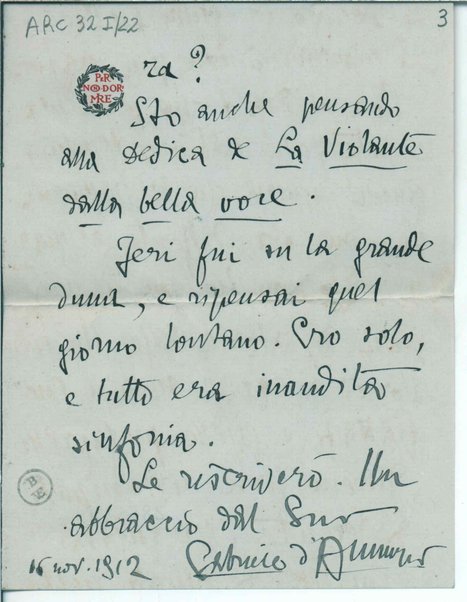 ARC 32 I/22
3
PER
NON DOR
MIRE
ra?
Sto anche pensando
alla dedica de La Violante
dalla bella voce.
Jeri fui su la grande
duna, e ripensai quel
giorno lontano. Ero solo,
e tutto era inaudita
sinfonia.
Le riscriverò. Un
abbraccio dal Suo
Gabriele d'Annunzio
16 nov. 1912